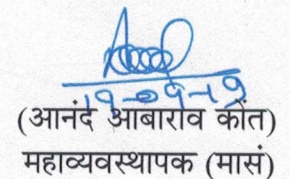 (आनंद आबाराव कोंत)
महाव्यवस्थापक (मासं)